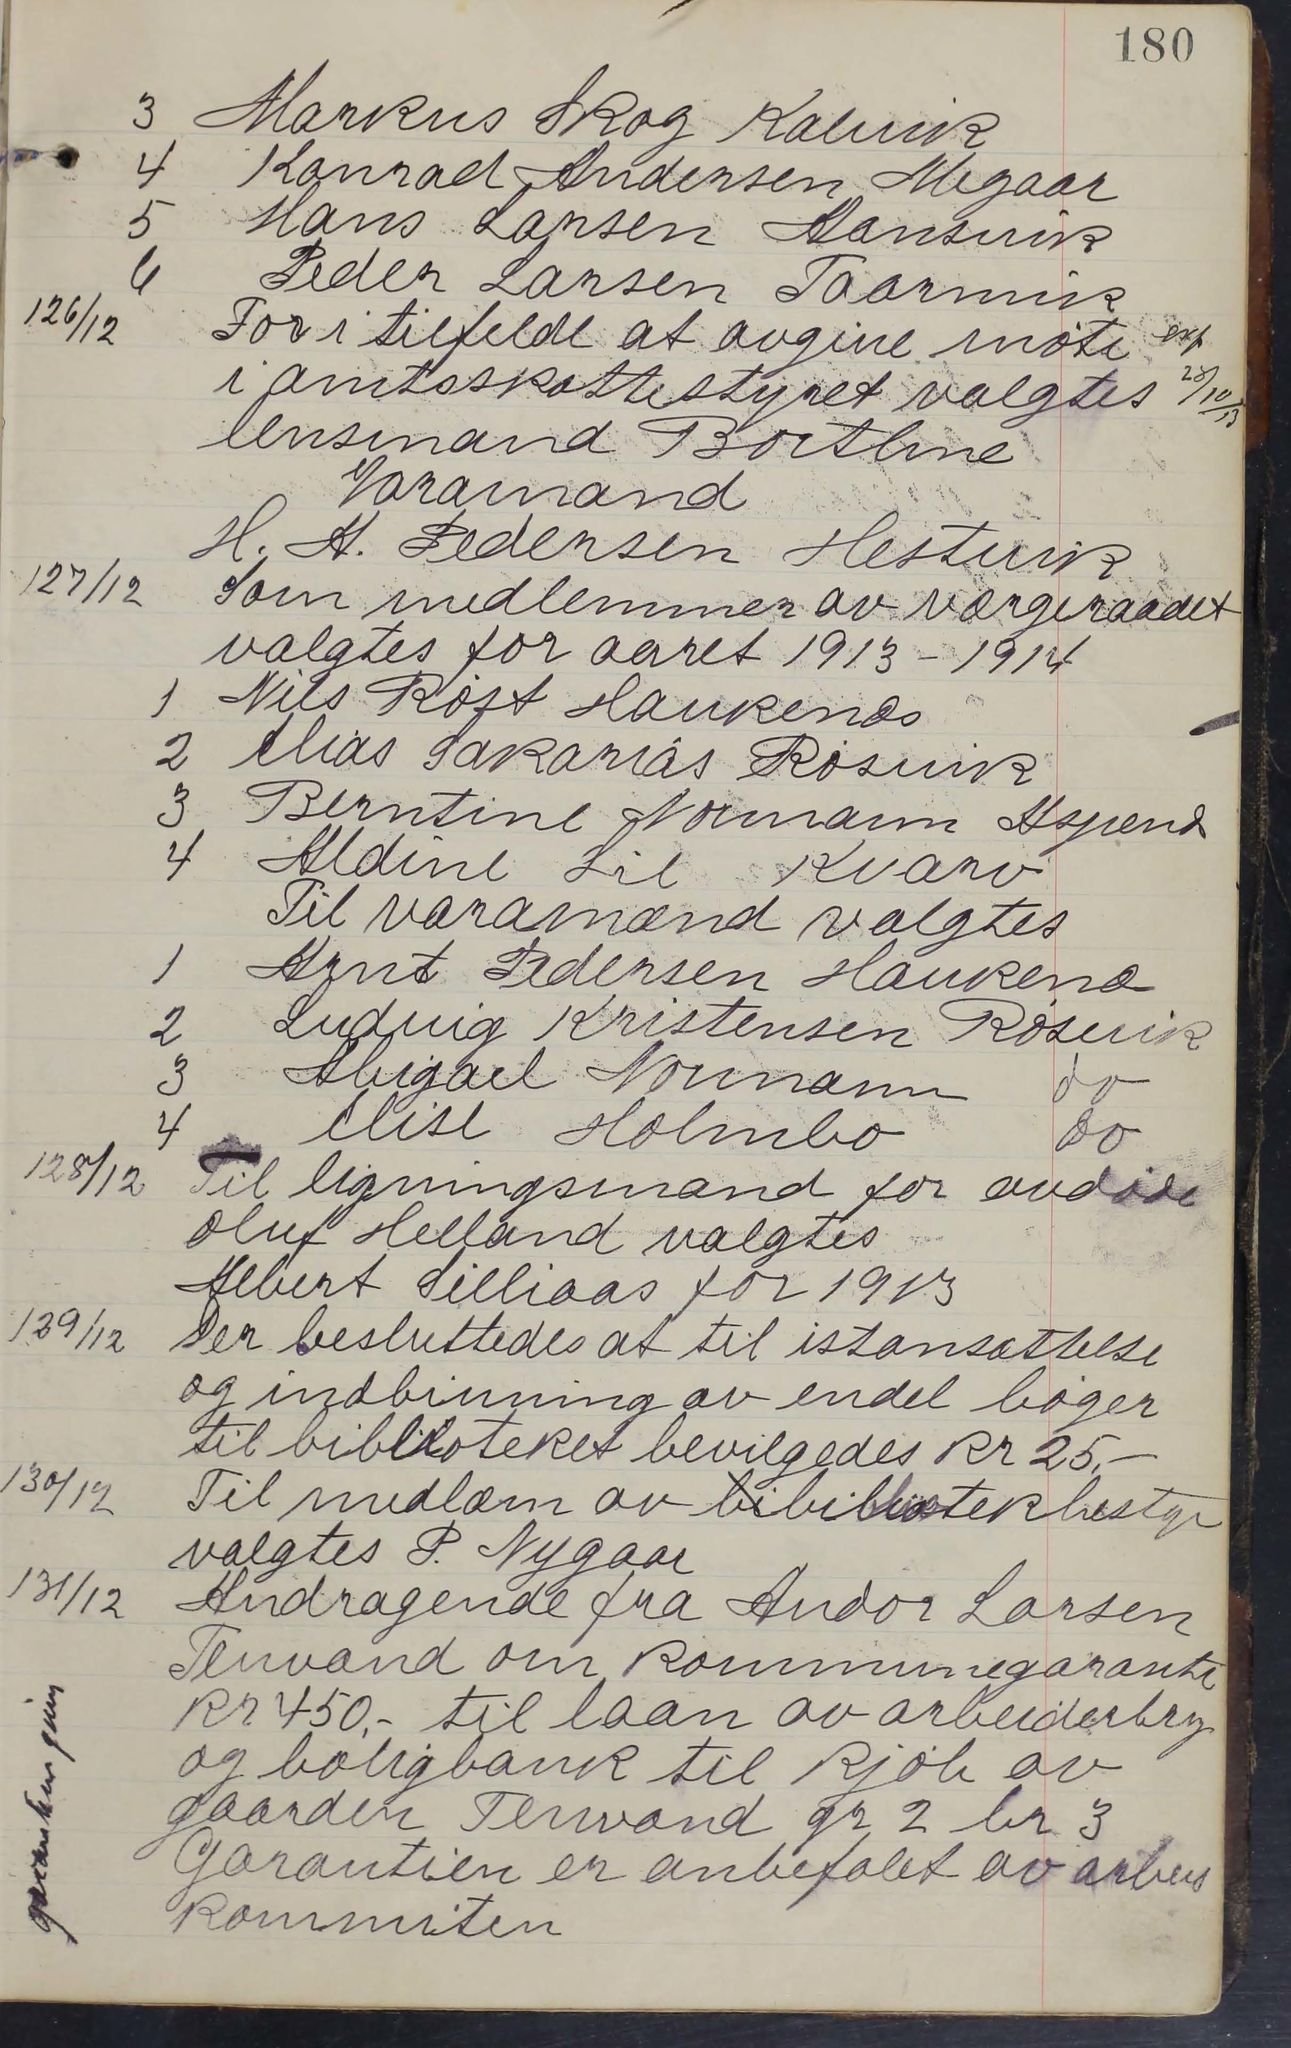 180
3 Markus Skog Kalvik
4 Konrad Andersen Megaar
5 Hans Larsen Hansvik
6 Peder Larsen Taarnvik
126/12 For i tilfelde at avgive møte exp
i amtsskattestyret valgtes 28/10/13
lensmand Boetline
Varamand
H. A. Pedersen Hestvik
127/12 Som medlemmer av værgeraadet
valgtes for aaret 1913-1914
1 Nils Røst Haukenes
2 Elias Sakarias Røsvik
3 Berntine Normann Aspenes
4 Aldine Lil Kvarv
Til varamænd valgtes
1 Arnt Pedersen Haukenæ
2 Ludvig Kristensen Røsvik
3 Abigael Normann do
4 Elise Holmbo do
128/12 Til ligningsmand for avdøde
Oluf Helland valgtes
Albert Silliaas for 1913
129/12 Der besluttedes at til istansættelse
og indbinning av endel bøger
til biblioteket bevilgedes kr 25,-
130/12 Til medlæm av bibliotekbestyr
valgtes P. Nygaar
131/12 Andragende fra Andor Larsen
Tennvand om kommunegaranti
kr 450,- til laan av arbeiderbry
og boligbank til kjøb av
gaarden Tennvand gr 2 br 3
Garantien er anbefalet av arbeis
kommiten